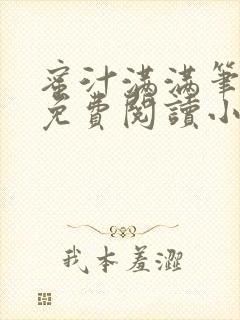 蜜汁满满筆
免費閱讀小
我本羞澀